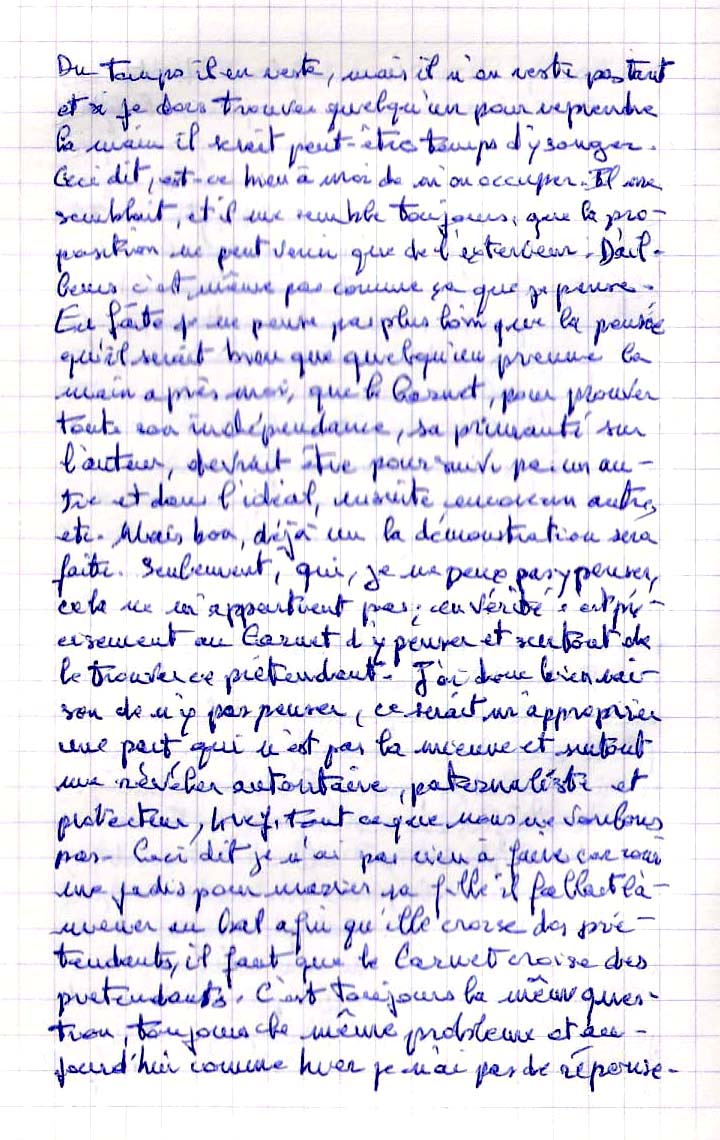 Du temps il en reste, mais il n'en reste pas tant
et si je dois trouver quelqu'un pour reprendre
la main il serait peut-être temps d'y songer.
Ceci dit, est-ce bien à moi de m'en occuper. Il me
semblait, et il me semble toujours, que la pro-
position ne peut venir que de l'extérieur. D'ail-
leurs c'est même pas comme ça que je pense.
En fait je ne pense pas plus loin que la pensée
qu'il serait bien que quelqu'un prenne la
main après moi, que le Carnet, pour prouver
toute son indépendance, sa primauté sur
l'auteur, devrait être poursuivi par un au-
tre et dans l'idéal, ensuite encore un autre,
etc. Mais bon, déjà un la démonstration sera
faite. Seulement, qui, je ne peux pas y penser,
cela ne m'appartient pas, en vérité c'est pré-
cisement au Carnet d'y penser et surtout de
le trouver ce prétendant. J'ai donc bien rai-
son de n'y pas penser, ce serait m'approprier
une part qui n'est pas la mienne et surtout
me révéler autoritaire, paternaliste et
protecteur, bref, tout ce que nous ne voulons
pas. Ceci dit je n'ai pas rien à faire car com
me jadis pour marier sa fille il fallait l'a-
mener au bal afin qu'elle croise des pré-
tendants, il faut que le Carnet croise des
pretendants. C'est toujours la même ques-
tion, toujours le même problème et au-
jourd'hui comme hier je n'ai pas de réponse.